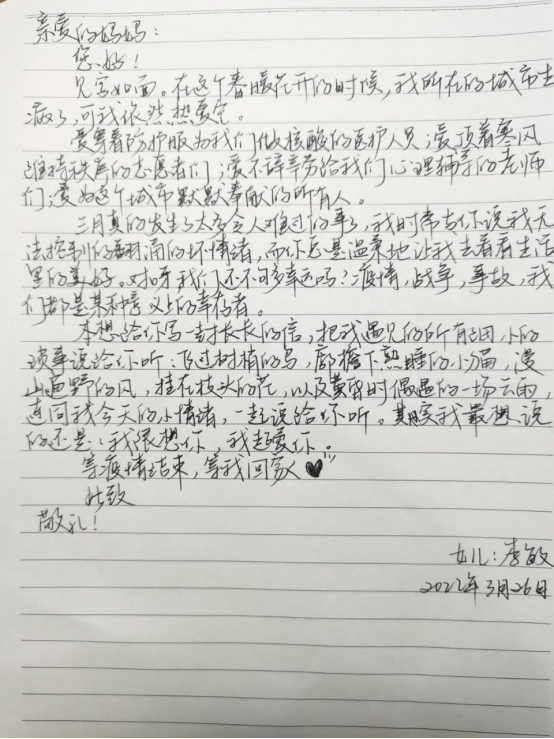 亲爱的妈妈：
您好！
见字如面。在这个春暖花开的时候，我所在的城市生
病了，可我依然热爱它。
爱穿着防护服为我们做核酸的医护人员；爱顶着寒风
维持秩序的志愿者们；爱不辞辛劳给我们心理辅导的老师
们；爱为这个城市默默奉献的所有人。
三月真的发生了太多令人难过的事了，我时常告你说我无
法控制的翻涌的坏情绪，而你总是温柔地让我去看看生活
里的美好。对呀我们还不可多幸运吗？疫情，战争，事故，我
们都是某种意义上的幸存者。
本想给你写一封长长的信，把我遇见的所有细小的
琐事说给你听：飞过树梢的鸟，廊檐下熟睡的小猫，漫
山遍野的风，挂在枝头的花，以及黄昏时偶遇的一场云雨，
连同我今天的小情绪，一起说给你听。其实我最想说
的还是：我很想你，我超爱你。
等疫情结束，等我回家
此致
敬礼！
女儿：李敏
2022年3月26日